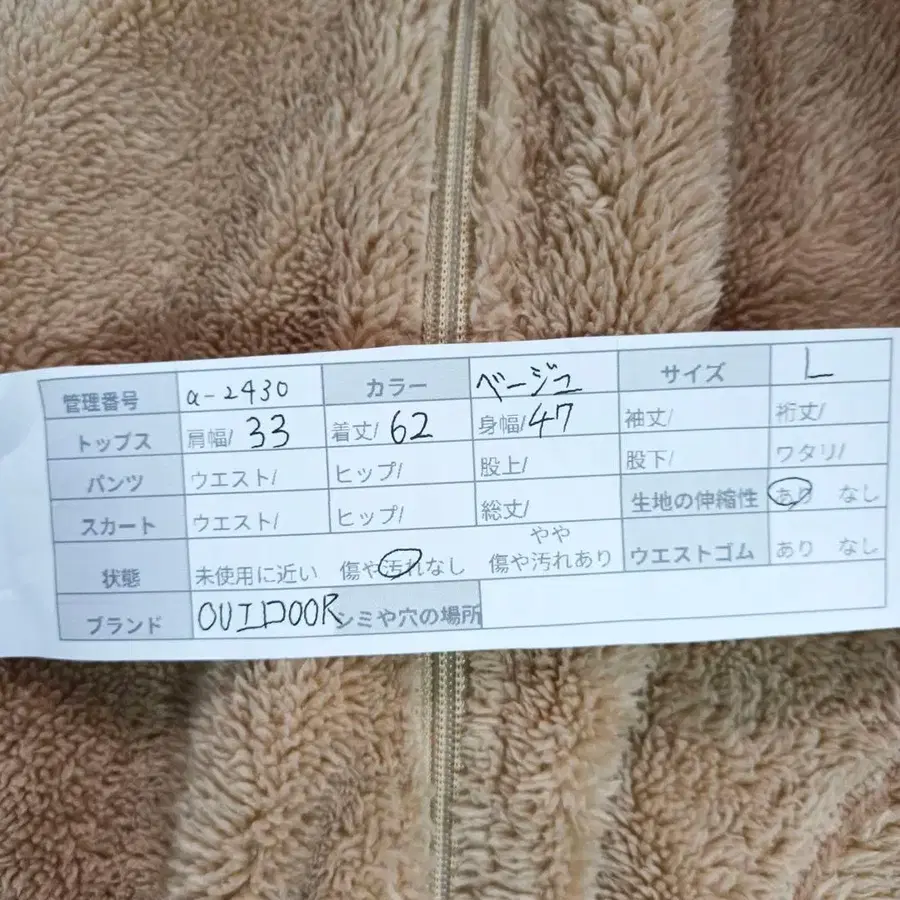 管理番号 a-2430 カラー ベージュ サイズ L
トップス 肩幅/ 33 着丈/ 62 身幅/ 47 袖丈/ 裄丈/
パンツ ウエスト/ ヒップ/ 股上/ 股下/ ワタリ/
スカート ウエスト/ ヒップ/ 総丈/ 生地の伸縮性 あり なし
状態 未使用に近い 傷や汚れなし やや
傷や汚れあり ウエストゴム あり なし
ブランド OUIDOOR シミや穴の場所